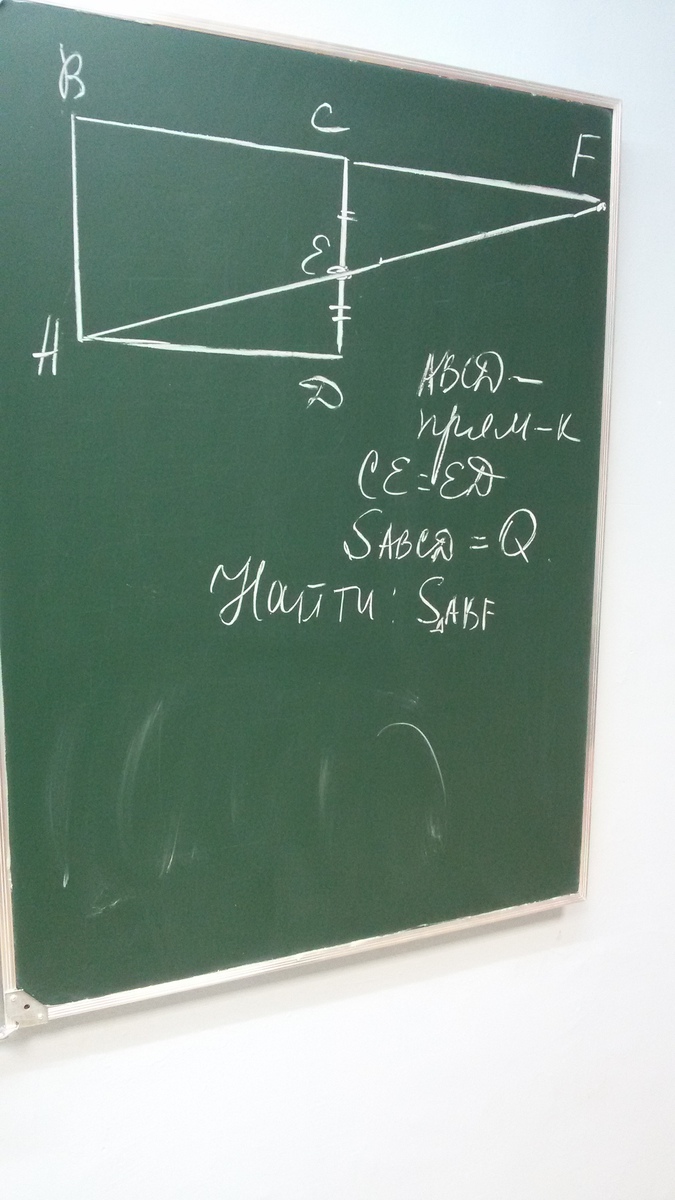 B
C
F
E
A
D
ABCD –
прям-к
CE = ED
SABCD = Q
Найти: S△ABF